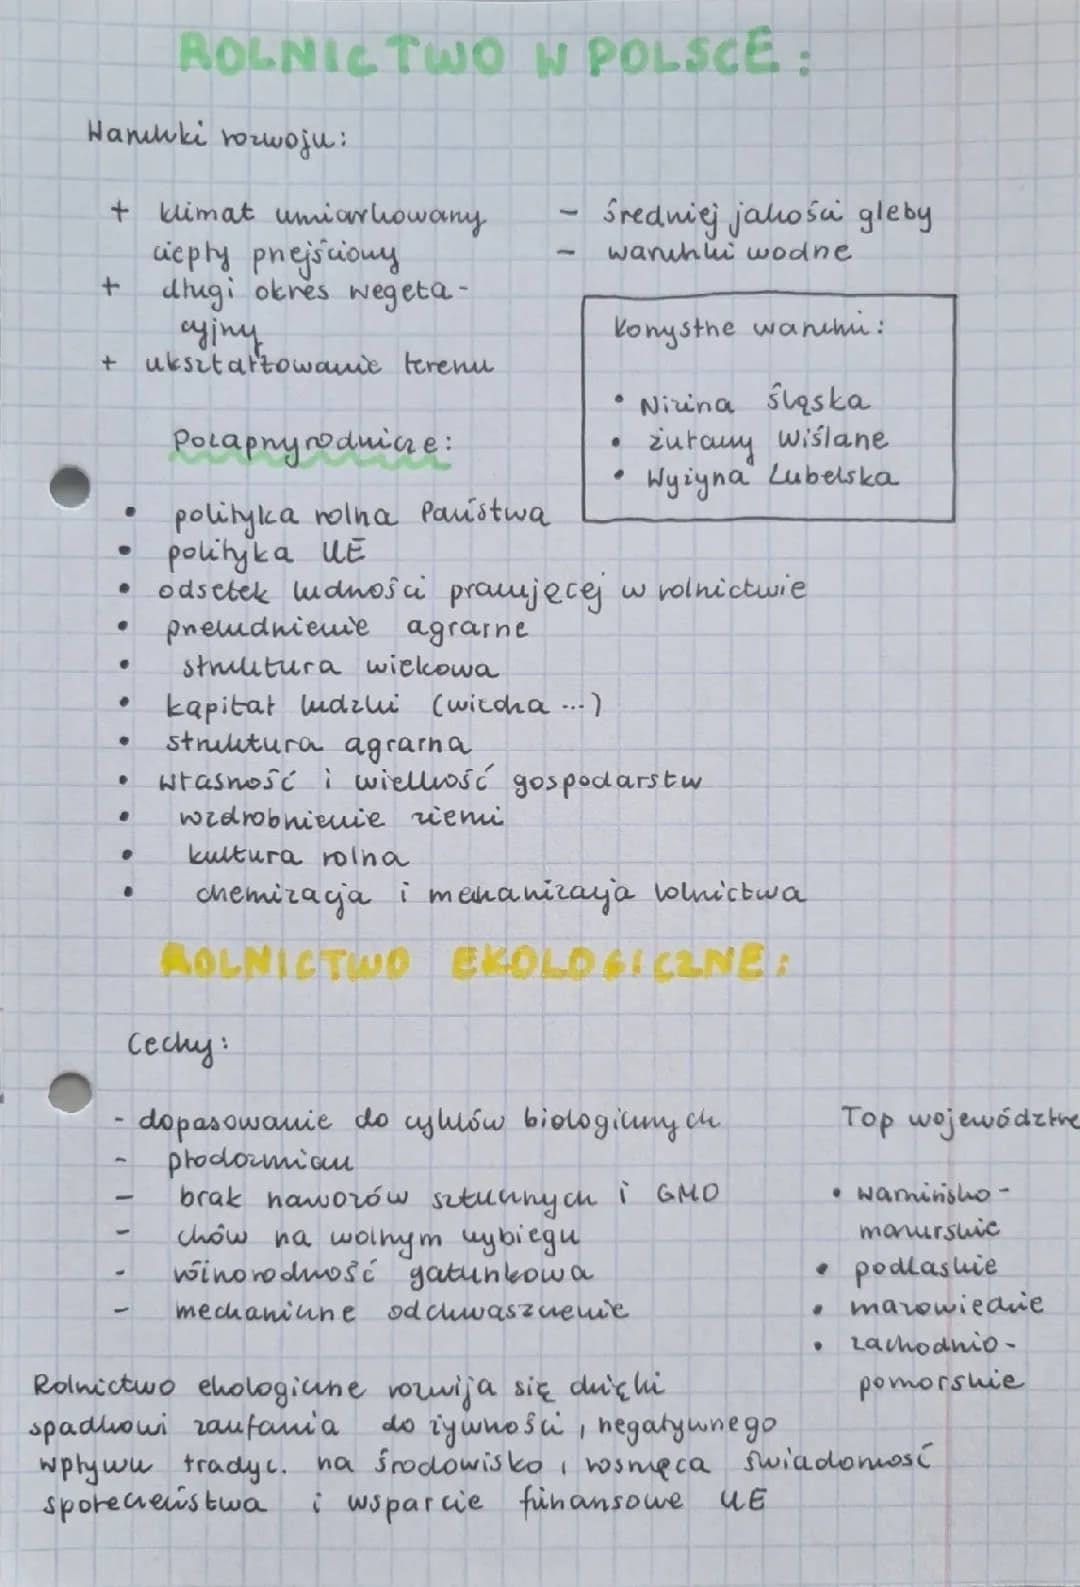 ROLNICTWO W POLSCE:
Warunki rozwoju:
+ klimat umiarkowany
ciepły przejściowy
+ długi okres wegeta-
cyjny
+ ukształtowanie terenu
- średniej jakości gleby
- warunki wodne
Korzystne warunki:
• Nizina śląska
• żuławy Wiślane
• Wyżyna Lubelska
Pozaprzyrodnicze:
• polityka rolna Państwa
• polityka UE
• odsetek ludności pracującej w rolnictwie
• przeludnienie agrarne
• struktura wiekowa
• kapitał ludzki (wiedza ...)
• struktura agrarna
• własność i wielkość gospodarstw
• rozdrobnienie ziemi
• kultura rolna
• chemizacja i mechanizacja rolnictwa
ROLNICTWO EKOLOGICZNE:
Cechy:
- dopasowanie do cyklów biologicznych
- płodozmian
- brak nawozów sztucznych i GMO
- chów na wolnym wybiegu
- różnorodność gatunkowa
- mechaniczne odchwaszczenie
Top województwa
• warmińsko-
mazurskie
• podlaskie
• mazowieckie
• zachodnio-
pomorskie
Rolnictwo ekologiczne rozwija się dzięki
spadkowi zaufania do żywności, negatywnego
wpływu tradyc. na środowisko, rosnąca świadomość
społeczeństwa i wsparcie finansowe UE